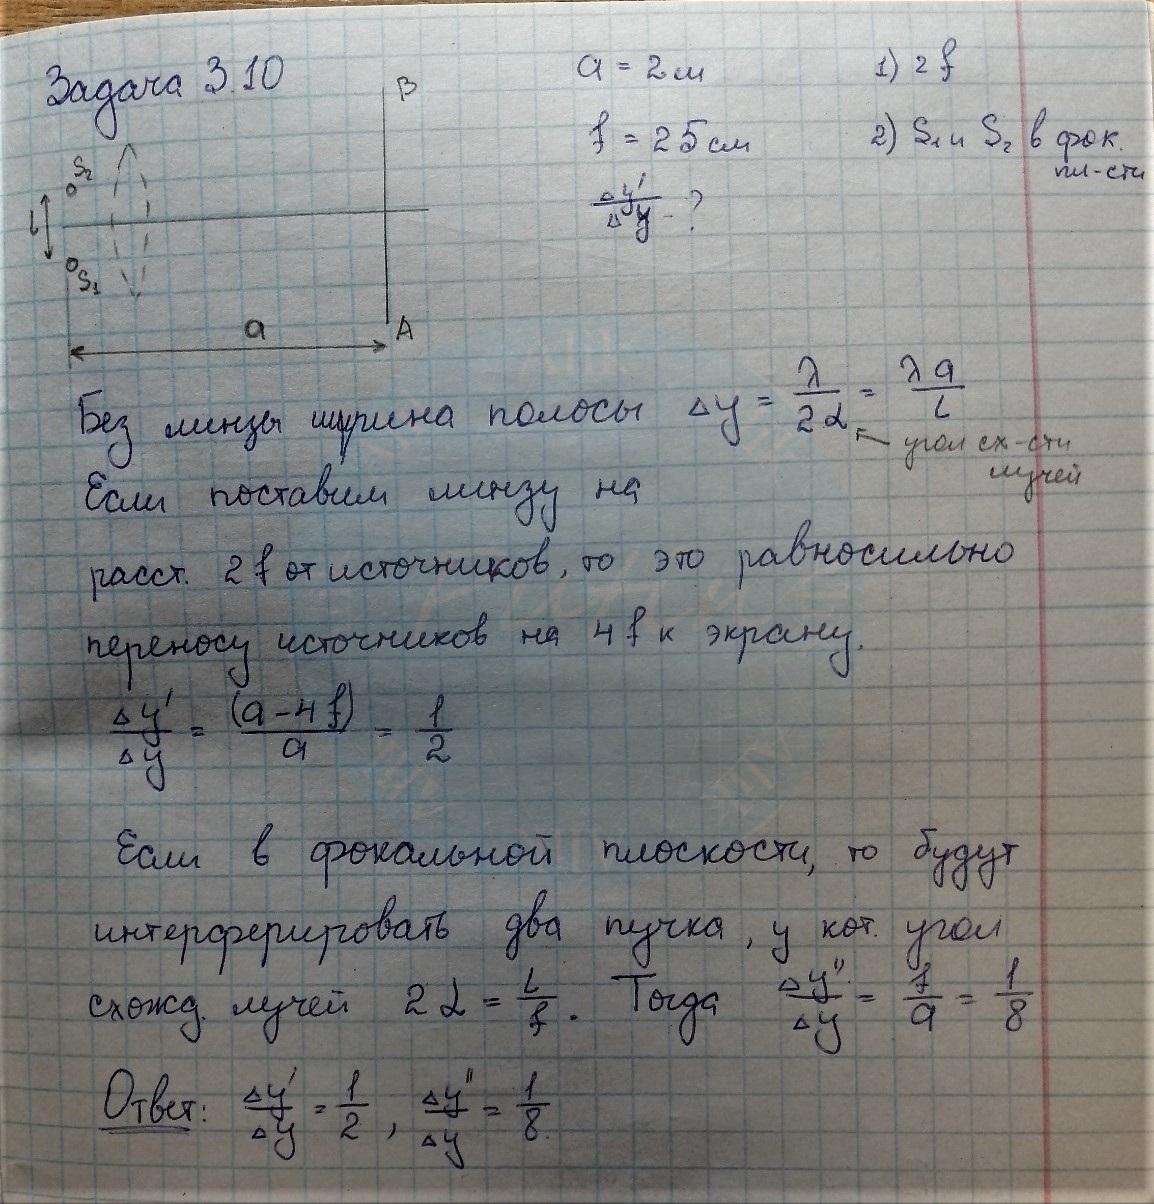 Задача 3.10
a = 2 м
1) 2f
f = 25 см
2) S₁ и S₂ в фок. пл-сти
Δy'/Δy - ?
S₂
L
S₁
a
B
A
Без линзы ширина полосы Δy = λ/2α = λa/L
угол сх-сти
лучей
Если поставим линзу на
расст. 2f от источников, то это равносильно
переносу источников на 4f к экрану.
Δy'/Δy = (a-4f)/a = 1/2
Если в фокальной плоскости, то будут
интерферировать два пучка, у кот. угол
схожд. лучей 2α = L/f. Тогда Δy''/Δy = f/a = 1/8
Ответ: Δy'/Δy = 1/2, Δy''/Δy = 1/8.